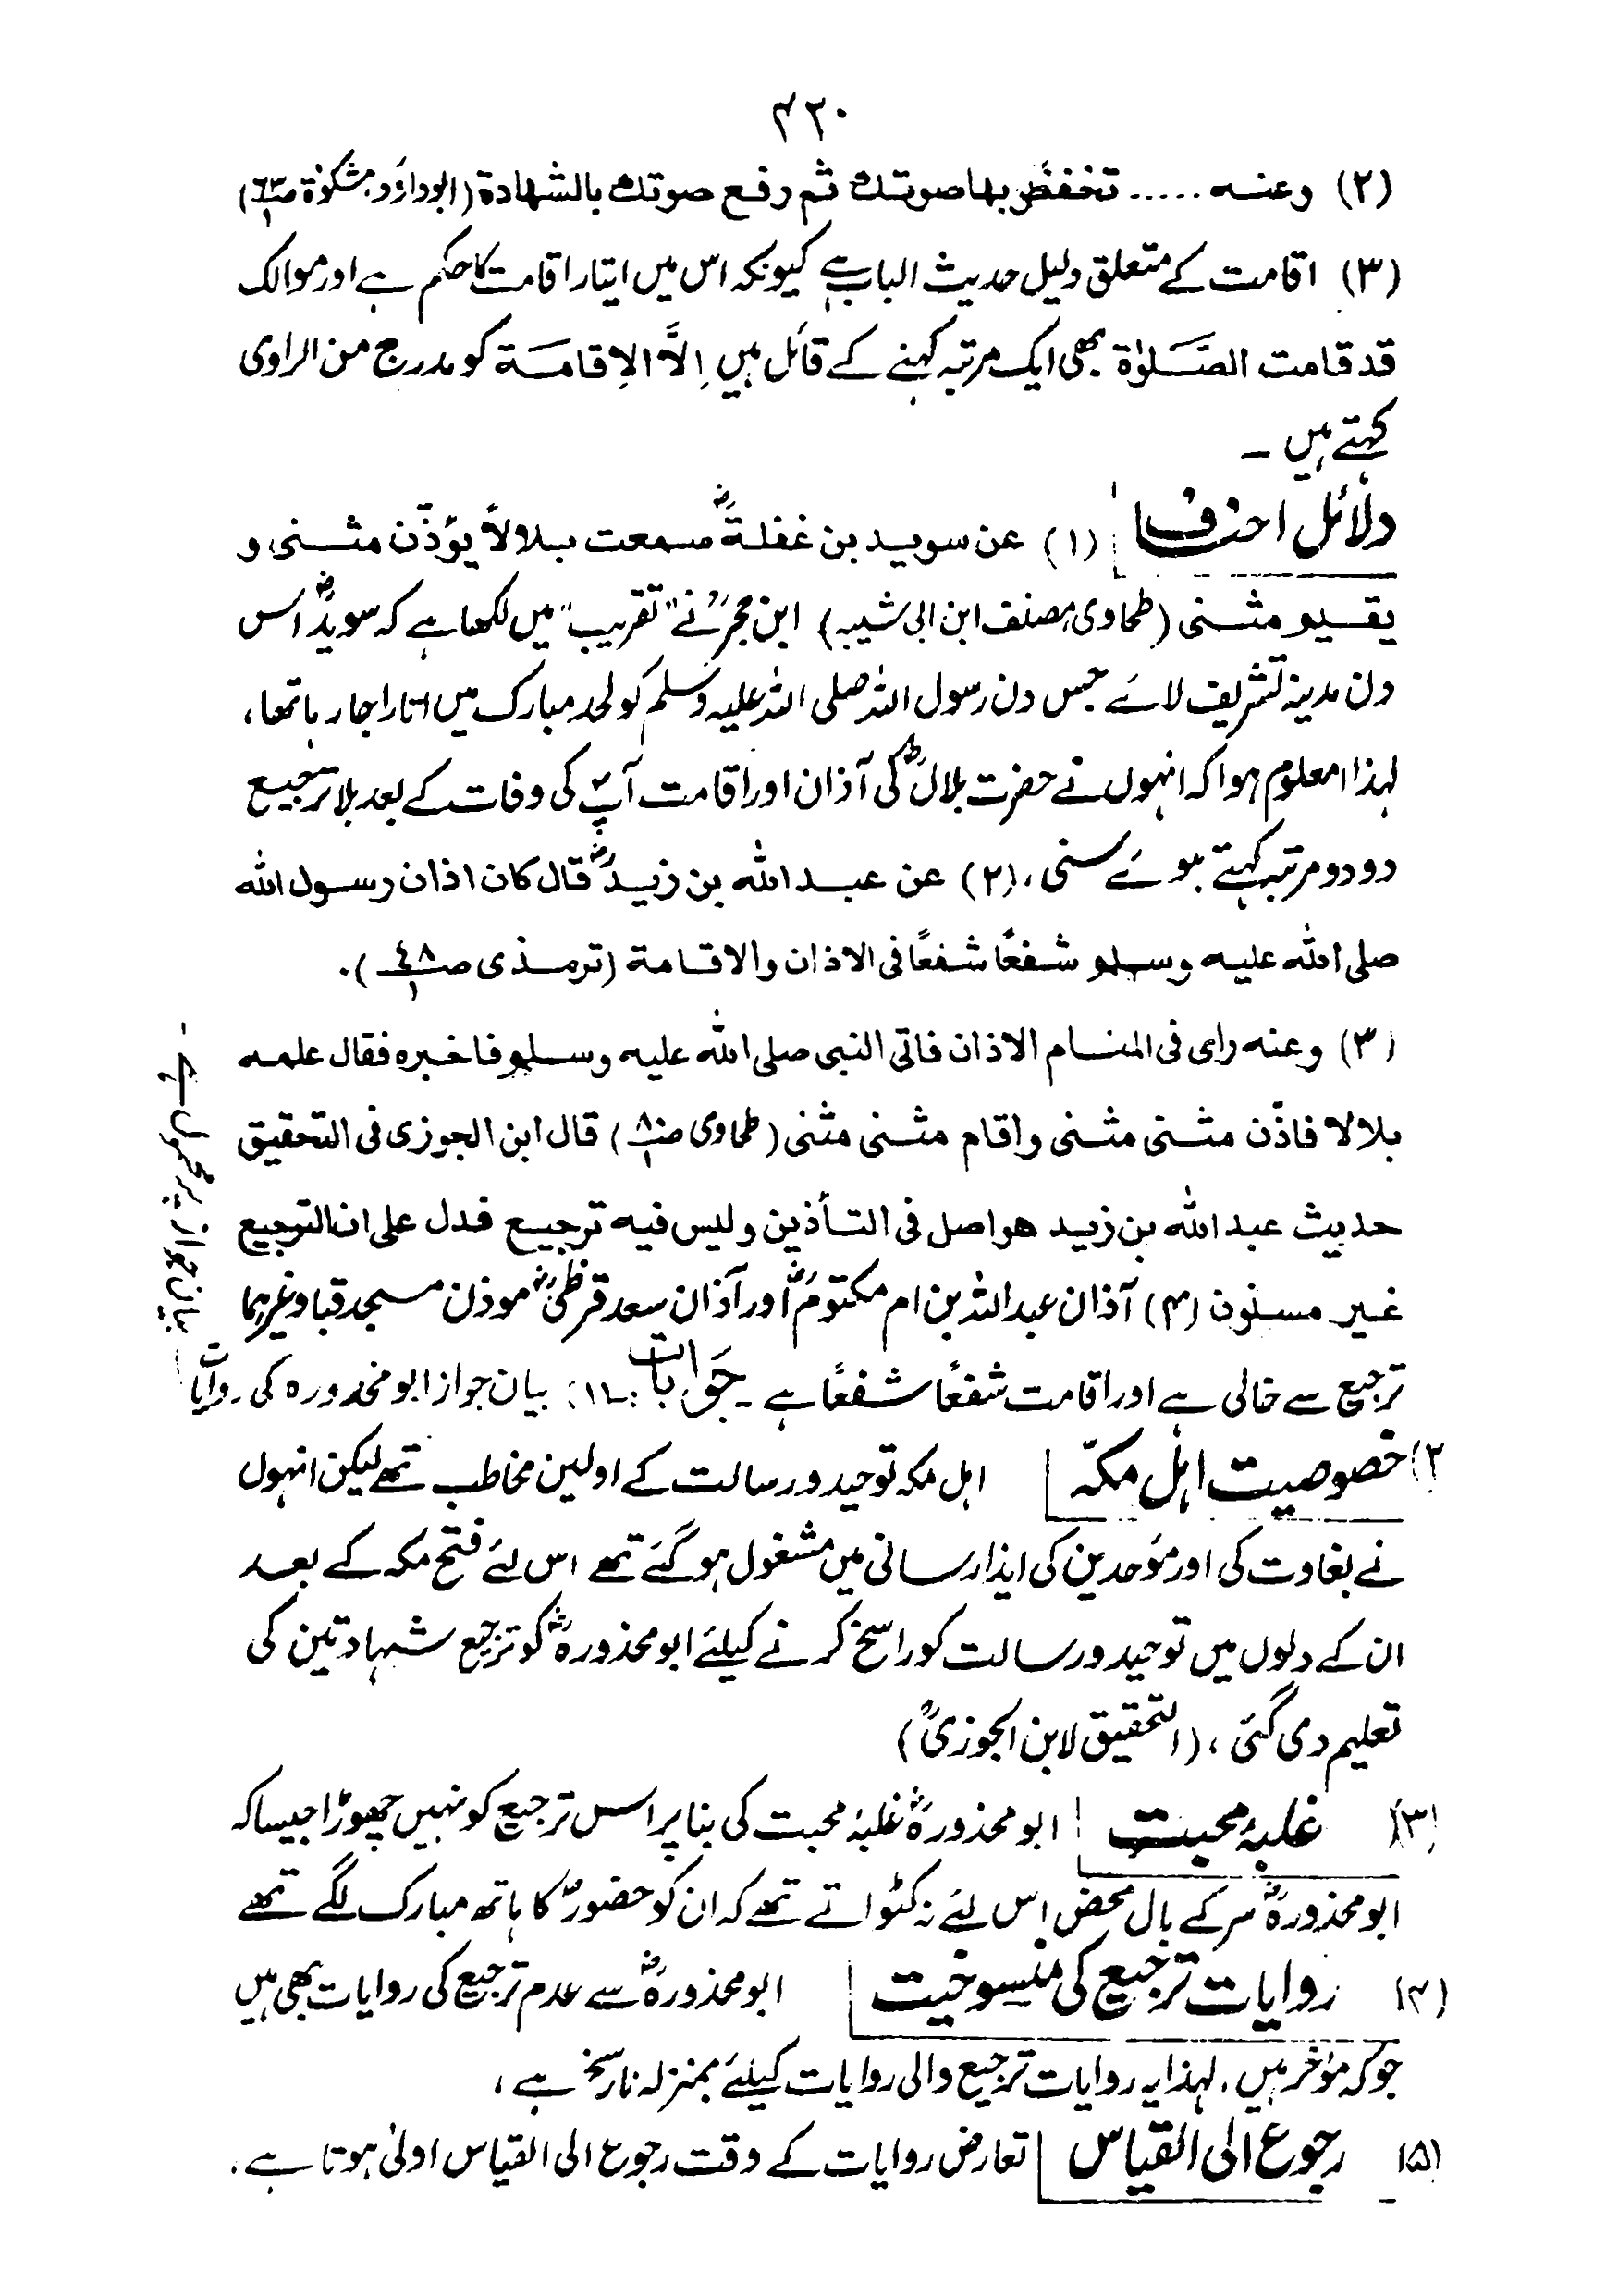 ۴۲۰
(۲) وعنه ..... تخفض بها صوتك ثم رفع صوتك بالشهادة (ابوداؤد، مشکوٰۃ ص۶۳/۱)
(۳) اقامت کے متعلق دلیل حدیث الباب ہے کیونکہ اس میں ایتار اقامت کا حکم ہے اور موالک
قد قامت الصَّلوٰة بھی ایک مرتبہ کہنے کے قائل ہیں اِلاَّ الاِقامَة کو مدرج من الراوی
کہتے ہیں ۔
دلائل احناف (۱) عن سويد بن غفلةؓ سمعت بلالاً يؤذّن مثنى و
يقيم مثنى (طحاوی، مصنف ابن ابی شیبہ) ابن حجرؒ نے "تقریب" میں لکھا ہے کہ سویدؓ اس
دن مدینہ تشریف لائے جس دن رسول اللہ صلی اللہ علیہ وسلم کو لحد مبارک میں اتارا جا رہا تھا،
لہذا معلوم ہوا کہ انہوں نے حضرت بلالؓ کی آذان اور اقامت آپؐ کی وفات کے بعد بلا ترجیع
دو دو مرتبہ کہتے ہوئے سنی، (۲) عن عبد الله بن زيدؓ قال كان اذان رسول الله
صلى الله عليه وسلم شفعًا شفعًا فى الاذان والاقامة (ترمذی ص۴۸/۱).
(۳) وعنه راى فى المنام الاذان فاتى النبى صلى الله عليه وسلم فاخبره فقال علمه
بلالا فاذّن مثنى مثنى واقام مثنى مثنى (طحاوی ص۸۰/۱) قال ابن الجوزى فى التحقيق
حديث عبد الله بن زيد هو اصل فى التأذين وليس فيه ترجيع فدل على ان الترجيع
غير مسنون (۴) آذان عبداللہ بن ام مکتومؓ اور آذان سعد قرظیؓ موذن مسجد قبا وغیرہما
ترجیع سے خالی ہے اور اقامت شفعًا شفعًا ہے ۔ جَوَابات :۔ (۱) بیان جواز ابو محذورہ کی روایات
بیان جواز پر محمول ہے ۔
(۲) خصوصیت اہل مکہّ اہل مکہ توحید و رسالت کے اولین مخاطب تھے لیکن انہوں
نے بغاوت کی اور مؤحدین کی ایذا رسانی میں مشغول ہو گئے تھے اس لئے فتح مکہ کے بعد
ان کے دلوں میں توحید و رسالت کو راسخ کرنے کیلئے ابو محذورہؓ کو ترجیع شہادتین کی
تعلیم دی گئی، (التحقیق لابن الجوزیؒ)
(۳) غلبۂ محبت ابو محذورہؓ غلبۂ محبت کی بنا پر اس ترجیع کو نہیں چھوڑا جیسا کہ
ابو محذورہؓ سر کے بال محض اس لئے نہ کٹواتے تھے کہ ان کو حضورؐ کا ہاتھ مبارک لگے تھے
(۴) روایات ترجیع کی منسوخیت ابو محذورہؓ سے عدم ترجیع کی روایات بھی ہیں
جو کہ مؤخر ہیں، لہذا یہ روایات ترجیع والی روایات کیلئے بمنزلہ ناسخ ہے،
(۵) رجوع الی القیاس تعارض روایات کے وقت رجوع الی القیاس اولیٰ ہوتا ہے.